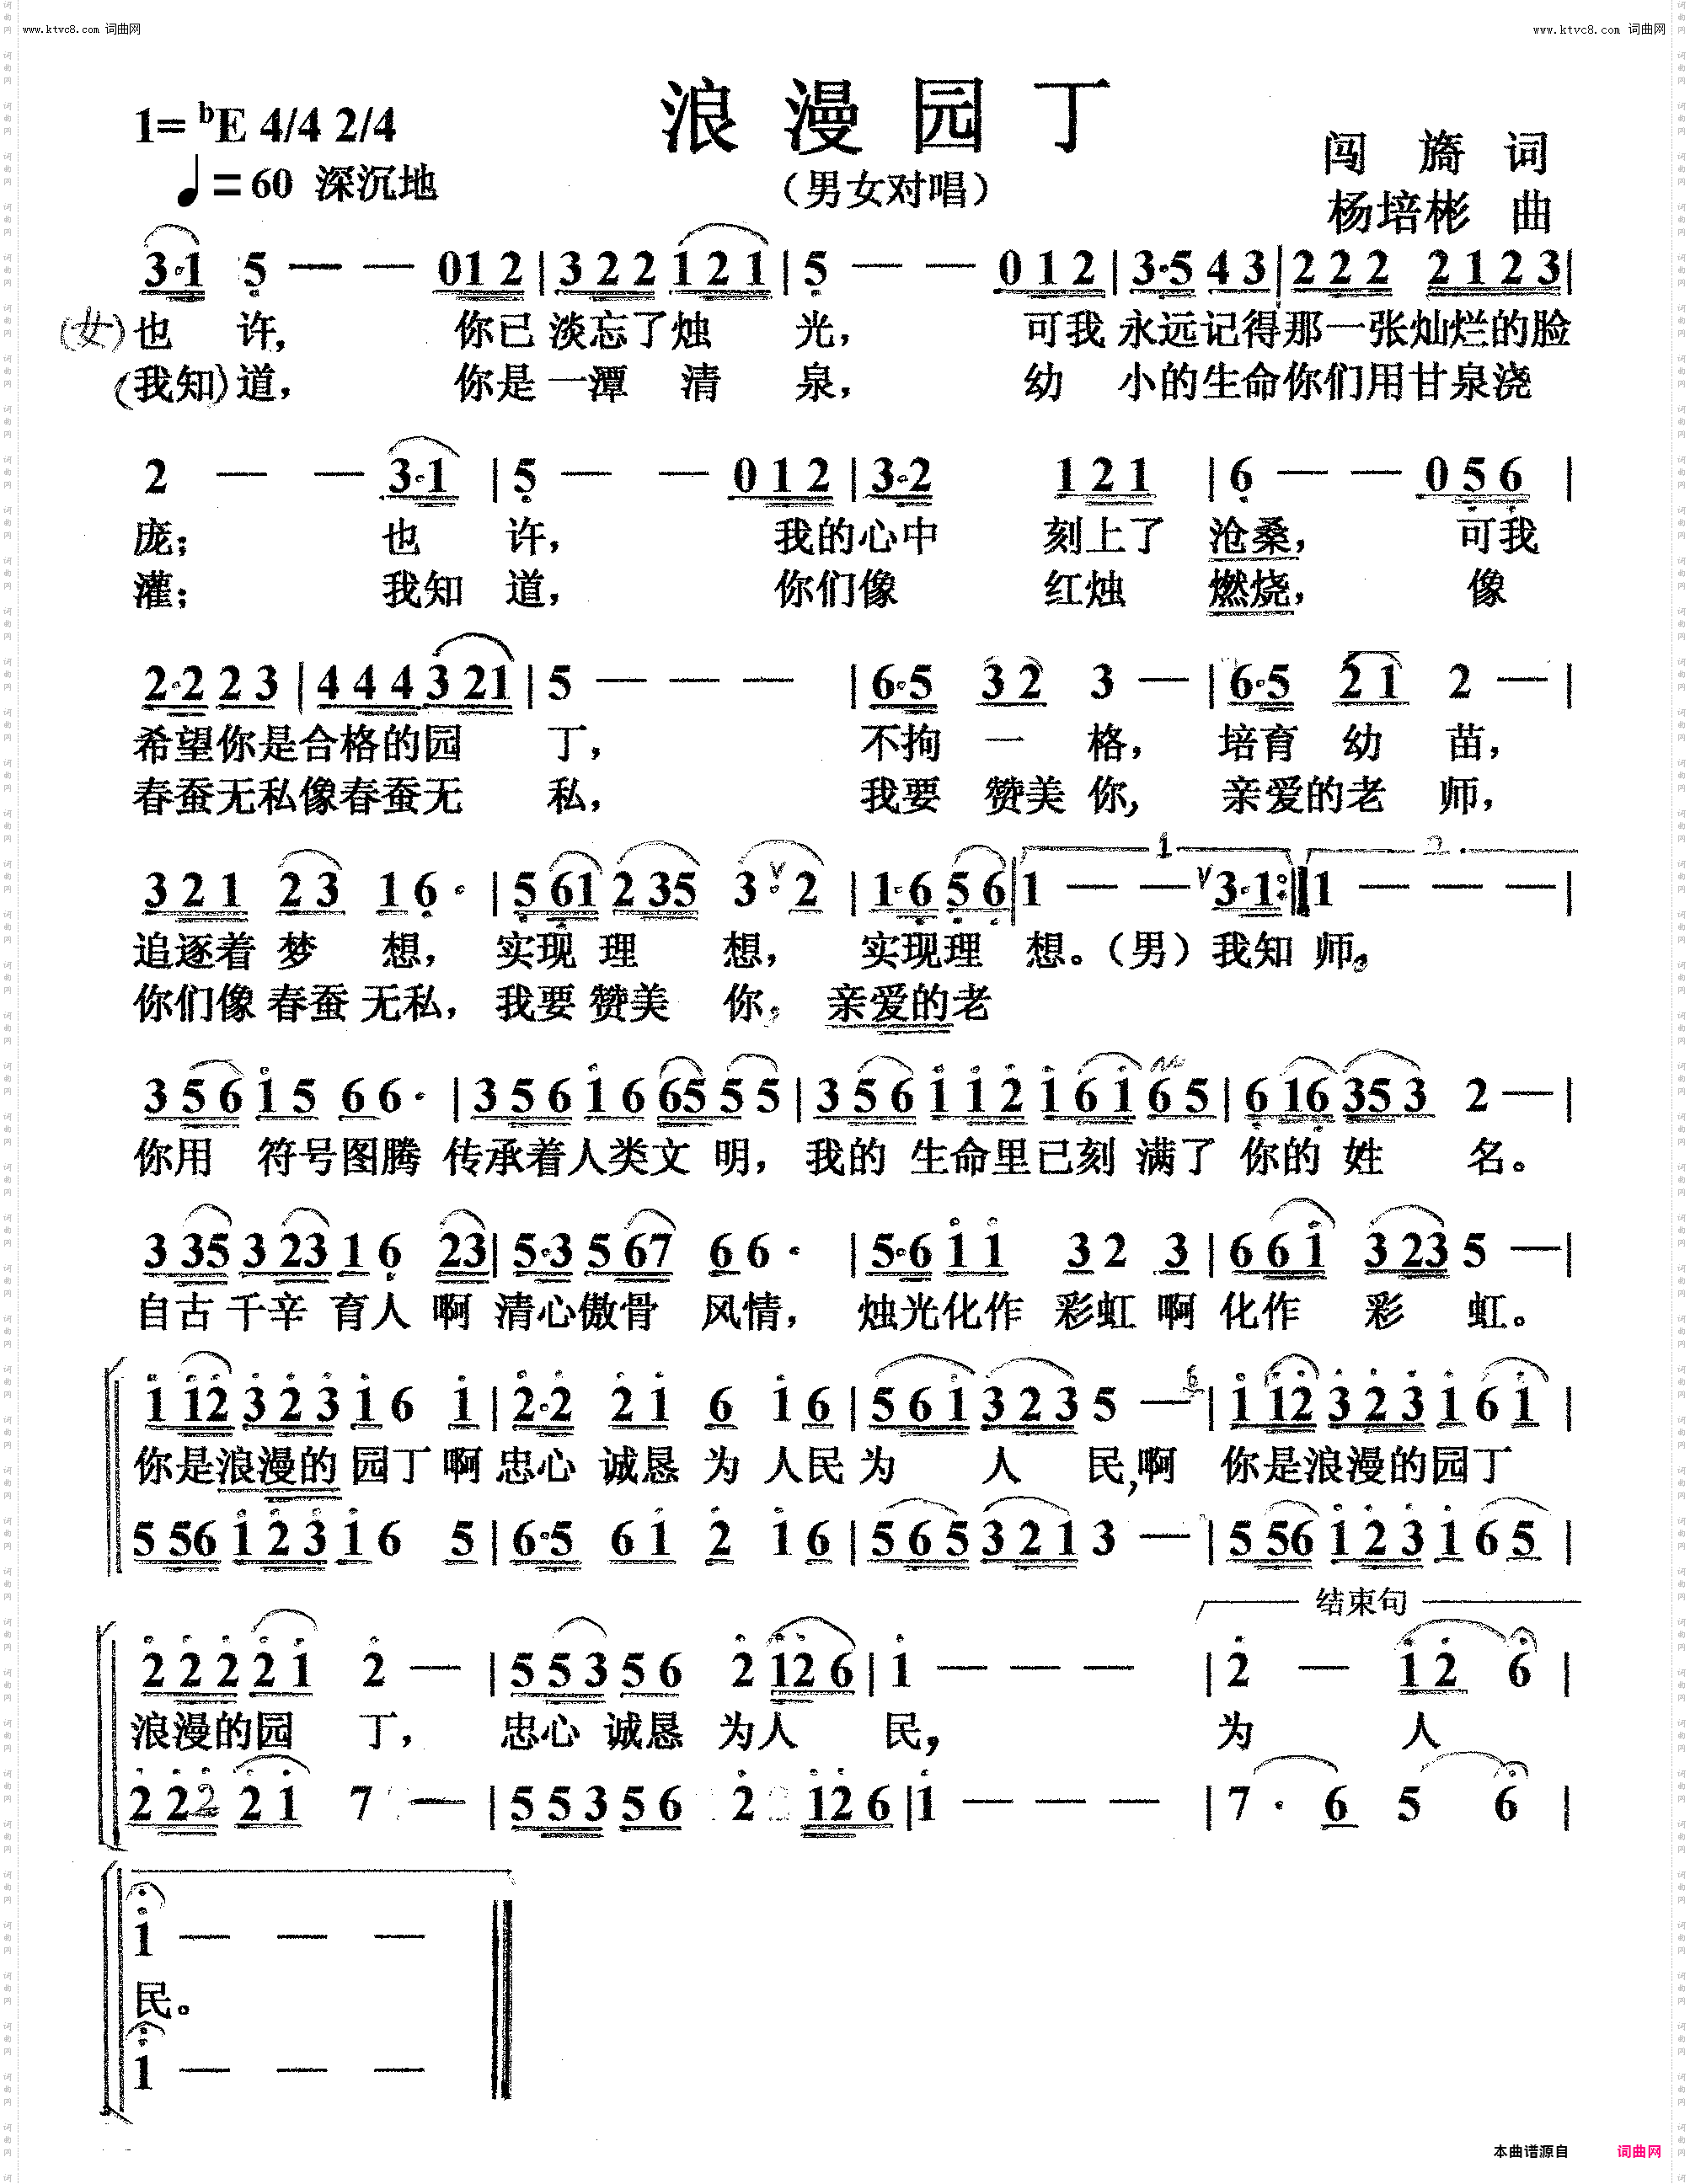 www.ktvc8.com 词曲网 www.ktvc8.com 词曲网
浪漫园丁
1= ᵇE 4/4 2/4
♩= 60 深沉地
（男女对唱）
闯旖 词
杨培彬 曲
3·1 5 — — 012 | 322 121 | 5 — — 012 | 3·5 43 | 222 2123 |
(女)也 许， 你已 淡忘了烛 光， 可我 永远记得那一张灿烂的脸
(我知)道， 你是 一潭 清 泉， 幼 小的生命你们用甘泉浇
2 — — 3·1 | 5 — — 012 | 3·2 121 | 6 — — 056 |
庞； 也 许， 我的心中 刻上了 沧桑， 可我
灌； 我知 道， 你们像 红烛 燃烧， 像
2·2 23 | 444 321 | 5 — — — | 6·5 32 3 — | 6·5 21 2 — |
希望你是合格的园 丁， 不拘 一 格， 培育 幼 苗，
春蚕无私像春蚕无 私， 我要 赞美 你， 亲爱的老 师，
321 23 16· | 561 235 3·2 | 1·6 56 | 1 — — 3·1 :| 1 — — — |
1. 2.
追逐着 梦 想， 实现 理 想， 实现理 想。（男）我知 师。
你们像 春蚕 无私， 我要 赞美 你， 亲爱的老
356 15 66· | 356 16 65 55 | 356 112 161 65 | 616 353 2 — |
你用 符号图腾 传承着人类文 明， 我的 生命里已刻 满了 你的 姓 名。
335 323 16 23 | 5·3 567 66· | 5·6 11 32 3 | 661 323 5 — |
自古 千辛 育人 啊 清心傲骨 风情， 烛光化作 彩虹 啊 化作 彩 虹。
112 323 16 1 | 2·2 21 6 16 | 561 323 5 — 6 | 112 323 161 |
你是浪漫的 园丁 啊 忠心 诚恳 为 人民 为 人 民,啊 你是浪漫的园丁
556 123 16 5 | 6·5 61 2 16 | 565 321 3 — | 556 123 165 |
结束句
222 21 2 — | 553 56 2 126 | 1 — — — | 2 — 12 6 |
浪漫的园 丁， 忠心 诚恳 为人 民， 为 人
222 21 7 — | 553 56 2 126 | 1 — — — | 7 · 6 5 6 |
1 — — —
民。
1 — — —
本曲谱源自 词曲网